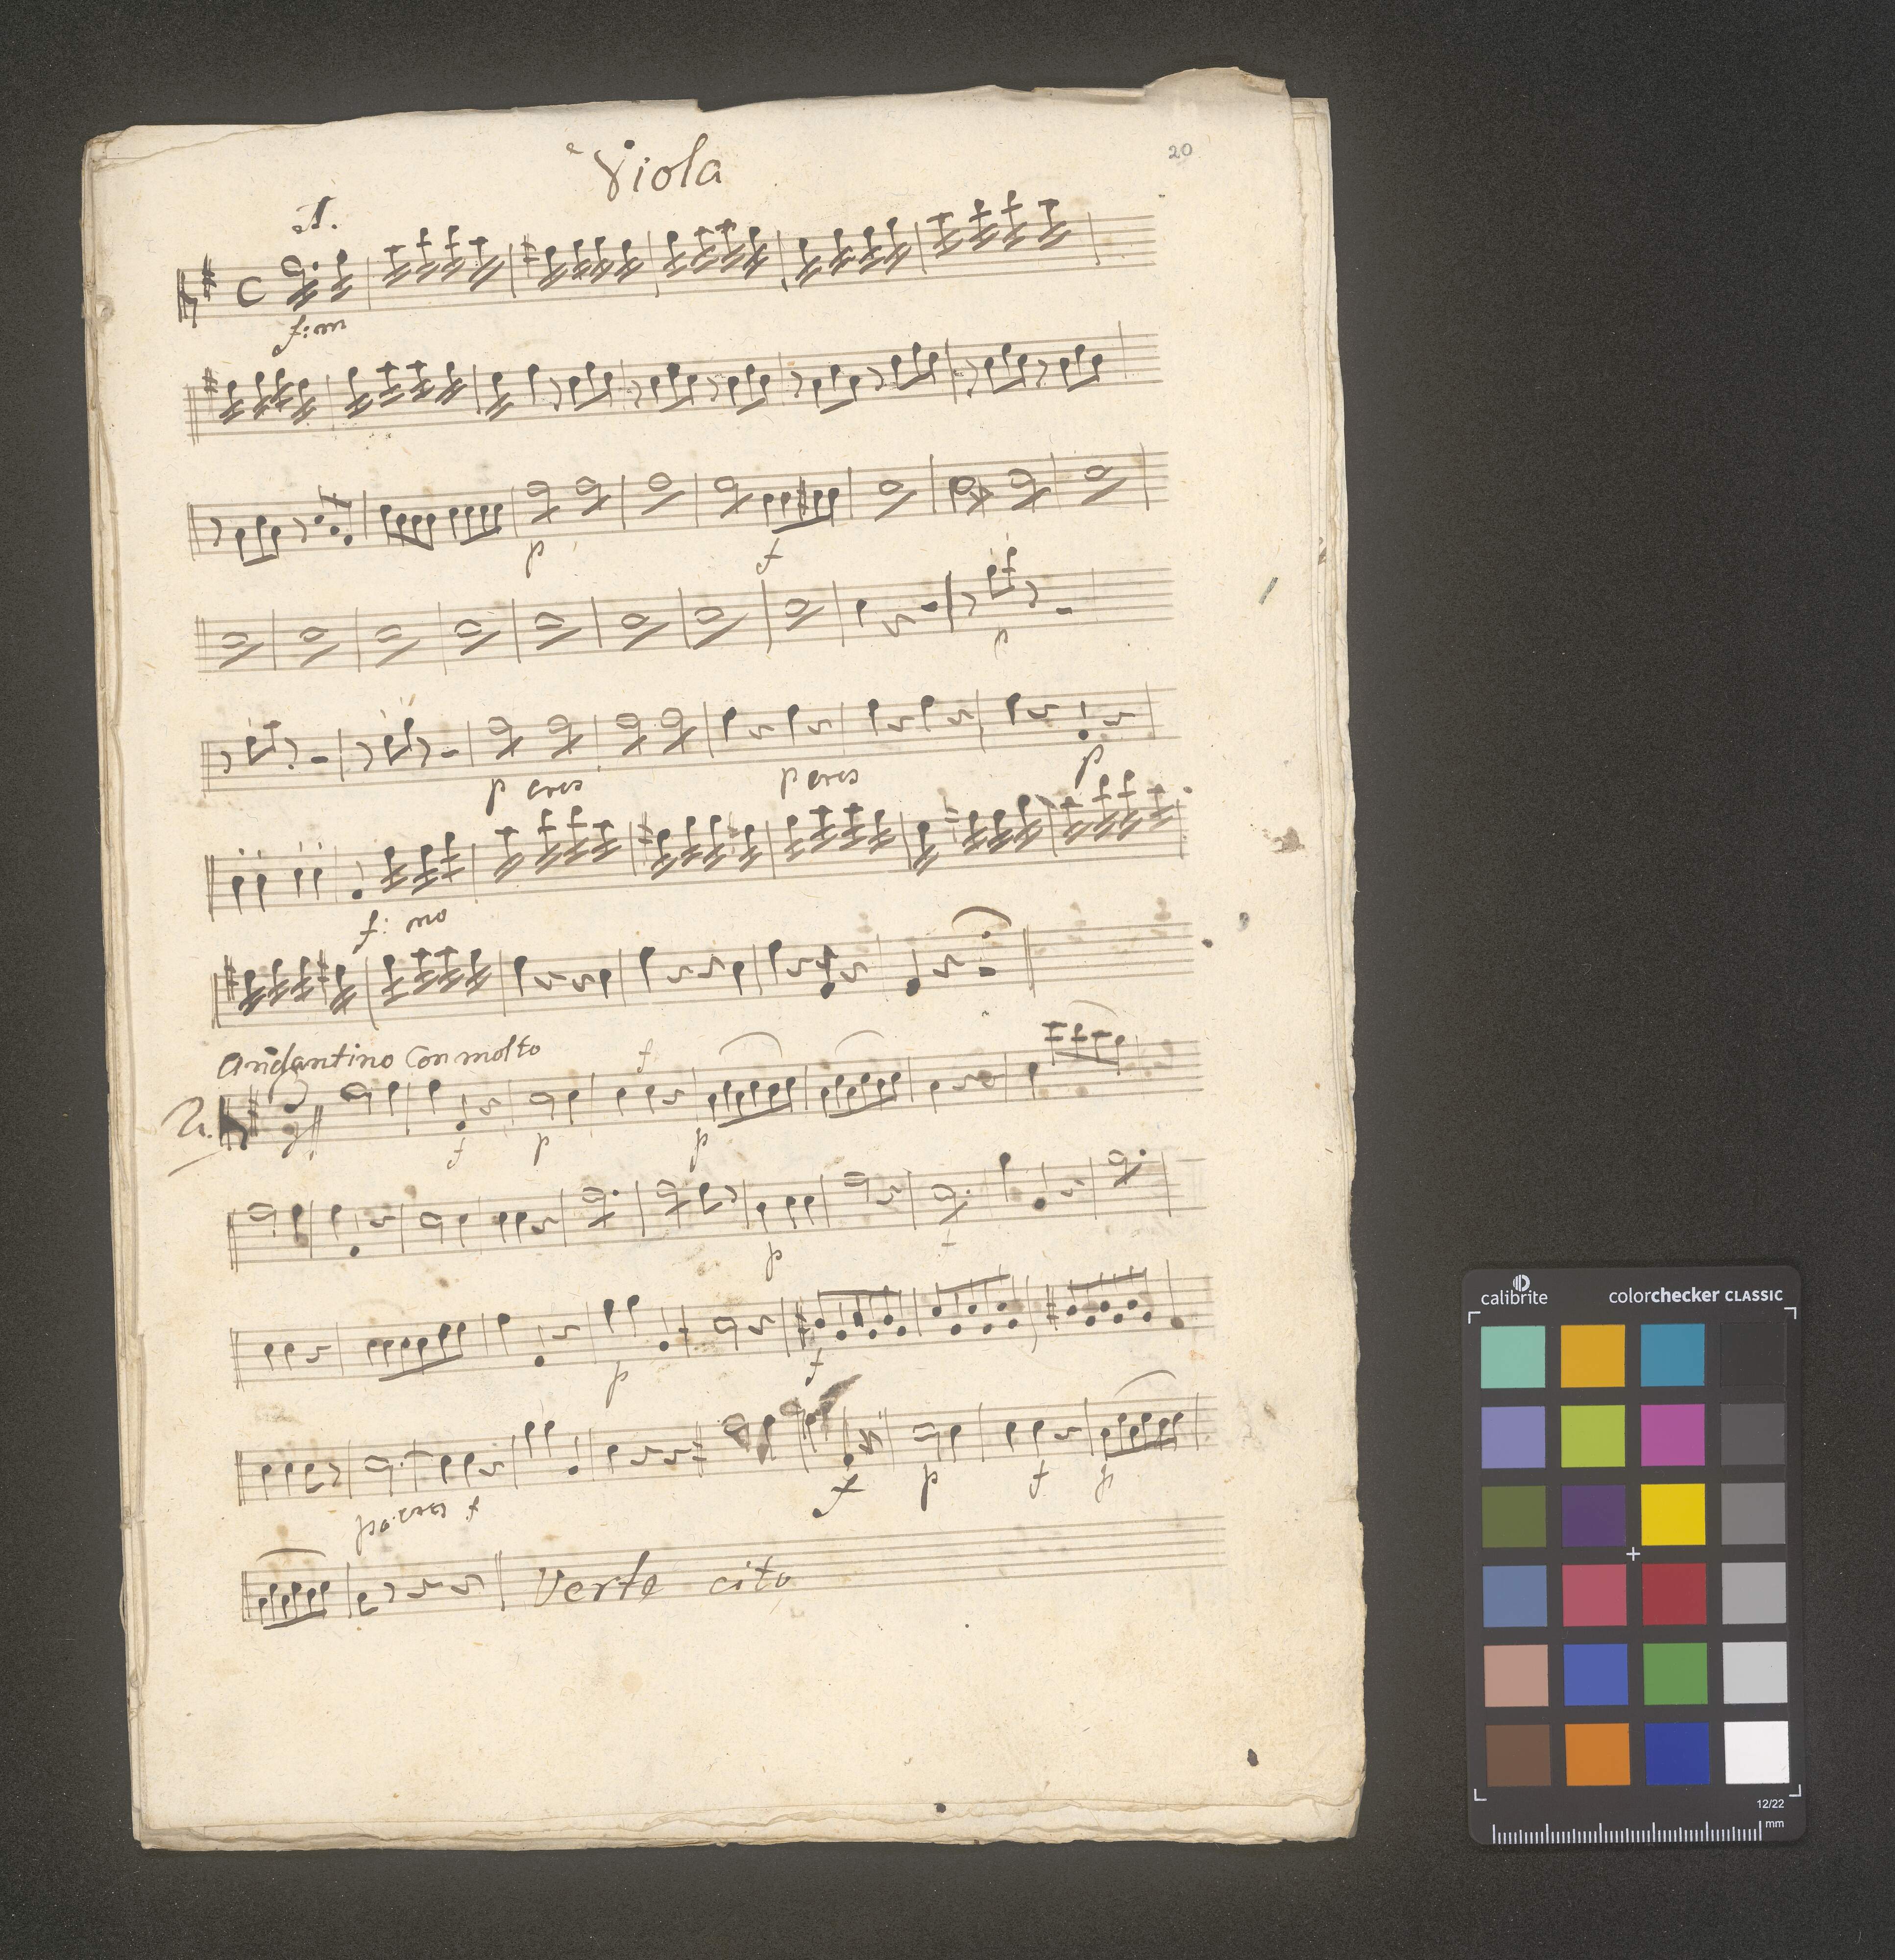 Viola
20
1.
C
f:m
p f
p
p cres p cres p
f: mo
Andantino Con molto f
2.
f p p
p f
p f
po: cres f f p f p
Verte cito
calibrite colorchecker CLASSIC
12/22
mm